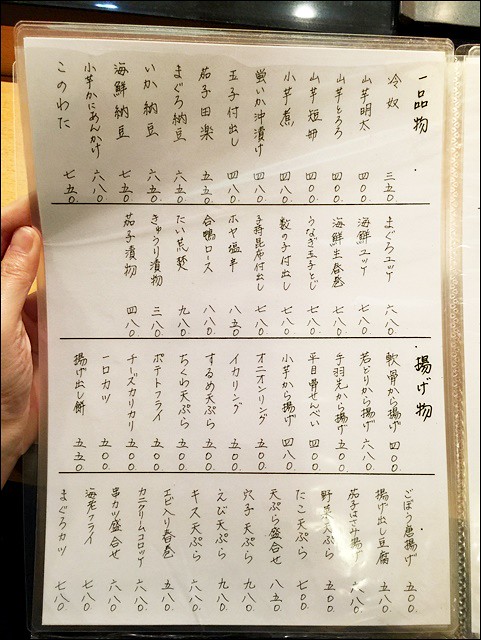 一品物
冷奴 三五〇.
山芋明太 四〇〇.
山芋とろろ 四〇〇.
山芋短冊 四〇〇.
小芋煮 四〇〇.
蛍いか沖漬け 四八〇.
玉子付出し 四八〇.
茄子田楽 五五〇.
まぐろ納豆 六五〇.
いか納豆 六五〇.
海鮮納豆 七五〇.
小芋かにあんかけ 六八〇.
このわた 七五〇.
まぐろユッケ 六八〇.
海鮮ユッケ 七八〇.
海鮮生春巻 七八〇.
うなぎ玉子とじ 七八〇.
数の子付出し 七八〇.
子持昆布付出し 七八〇.
ホヤ塩辛 八五〇.
合鴨ロース 八八〇.
たい荒焚 九八〇.
きゅうり漬物 三八〇.
茄子漬物 四八〇.
揚げ物
軟骨から揚げ 四〇〇.
若どりから揚げ 六八〇.
手羽先から揚げ 五〇〇.
平目骨せんべい 四〇〇.
小芋から揚げ 四八〇.
オニオンリング 五〇〇.
イカリング 五〇〇.
するめ天ぷら 五五〇.
ちくわ天ぷら 五〇〇.
ポテトフライ 五〇〇.
チーズカリカリ 五五〇.
一口カツ 五〇〇.
揚げ出し餅 五五〇.
ごぼう唐揚げ 五〇〇.
揚げ出し豆腐 五八〇.
茄子はさみ揚げ 六八〇.
野菜天ぷら 五〇〇.
たこ天ぷら 七〇〇.
天ぷら盛合せ 八五〇.
穴子天ぷら 九八〇.
えび天ぷら 九八〇.
キス天ぷら 六八〇.
エビ入り春巻 五八〇.
カニクリームコロッケ 六八〇.
串カツ盛合せ 六八〇.
海老フライ 七八〇.
まぐろカツ 七八〇.